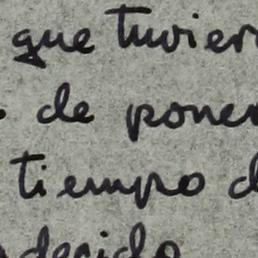 que tuvier
de poner
tiempo d
decido